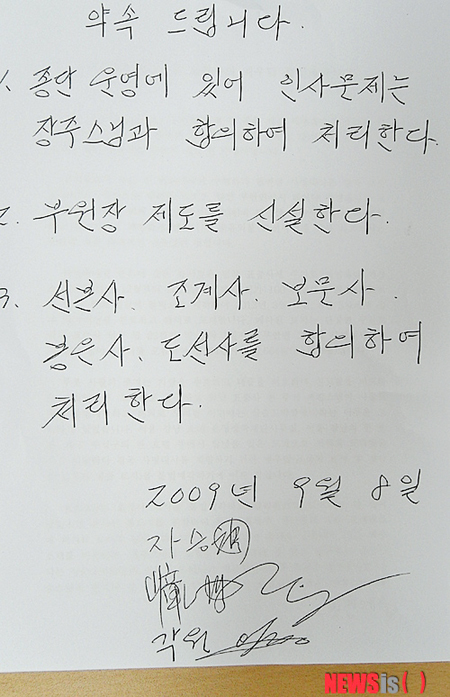 약속 드립니다.
1. 종단 운영에 있어 인사문제는
장주스님과 합의하여 처리한다.
2. 부원장 제도를 신설한다.
3. 선본사. 조계사. 보문사.
봉은사. 도선사를 합의하여
처리한다.
2009년 9월 8일
자승
각원
NEWSis( )